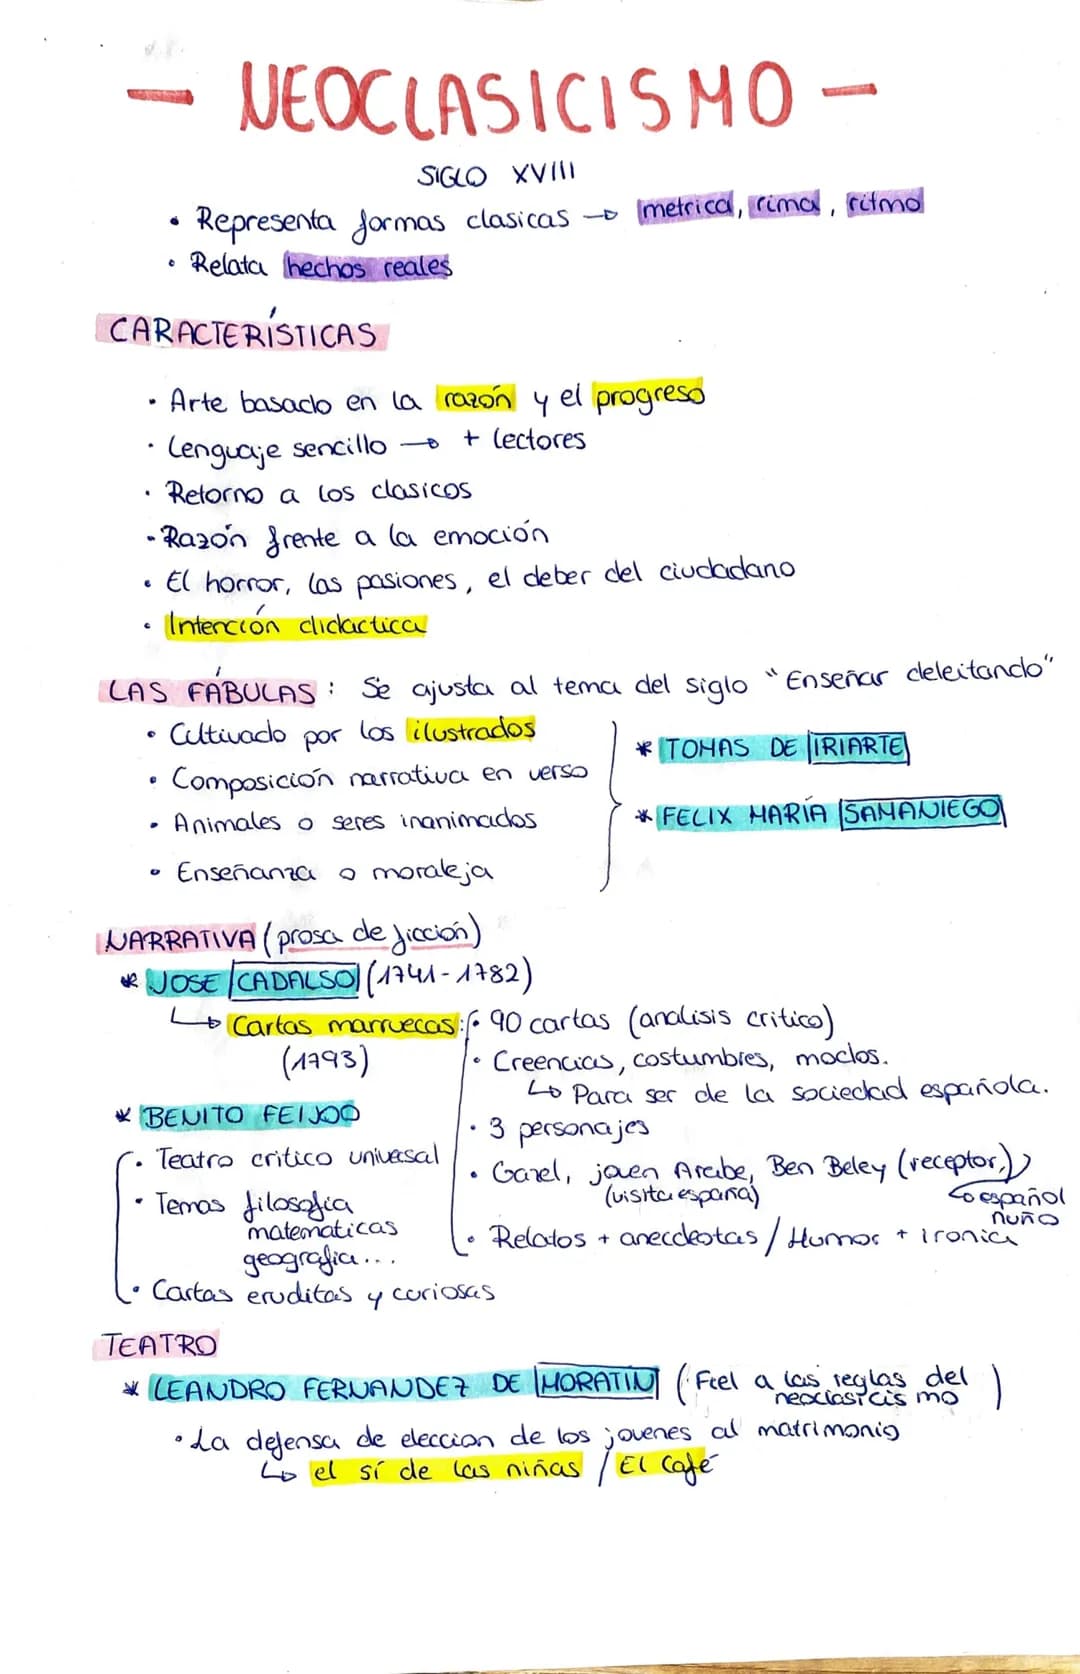 - NEOCLASICISMO -
SIGLO XVIII
• Representa formas clasicas → metrica, rima, ritmo
• Relata hechos reales
CARACTERÍSTICAS
• Arte basado en la razón y el progreso
• Lenguaje sencillo → + lectores
• Retorno a los clasicos
- Razón frente a la emoción
• El horror, las pasiones, el deber del ciudadano
• Intención didactica
LAS FÁBULAS: Se ajusta al tema del siglo "Enseñar deleitando"
• Cultivado por los ilustrados
• Composición narrativa en verso
• Animales o seres inanimados
• Enseñanza o moraleja
* TOMAS DE IRIARTE
* FELIX MARÍA SAMANIEGO
NARRATIVA (prosa de ficción)
* JOSE CADALSO (1741-1782)
↳ Cartas marruecas: • 90 cartas (analisis critico)
(1793)
• Creencias, costumbres, modos.
↳ Para ser de la sociedad española.
• 3 personajes
• Gazel, joven Arabe, Ben Beley (receptor,)
(visita españa)
↳ español
nuño
• Relatos + anecdotas / Humor + ironia
* BENITO FEIJOO
• Teatro critico universal
• Temas filosofia
matematicas
geografia...
• Cartas eruditas y curiosas
TEATRO
* LEANDRO FERNANDEZ DE MORATIN (Fiel a las reglas del
neoclasicismo)
• La defensa de eleccion de los jovenes al matrimonio
↳ el sí de las niñas / El Café